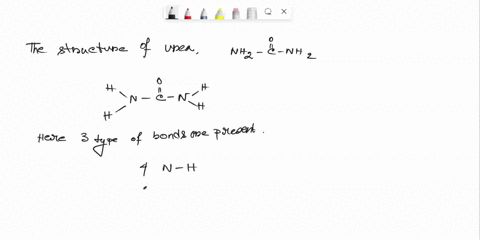 The structure of urea,
O
NH2 – C – NH2
O
H H
N – C – N
H H
Here 3 type of bonds are present.
4 N – H